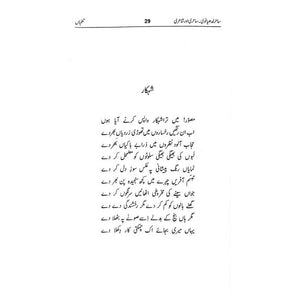 ساحر لدھیانوی۔ ساحری اور شاعری 29 تلخیاں
شہکار
مصوّر! میں ترا شہکار واپس کرنے آیا ہوں
اب ان رنگین رخساروں میں تھوڑی زردیاں بھر دے
حجاب آلود نظروں میں ذرا بے باکیاں بھر دے
لبوں کی بھیگی بھیگی سلوٹوں کو مضمحل کر دے
نمایاں رنگِ پیشانی پہ عکسِ سوزِ دل کر دے
تبسم آفریں چہرے میں کچھ سنجیدہ پن بھر دے
جواں سینے کی مخروطی اٹھانیں سرنگوں کر دے
گھنے بالوں کو کم کر دے مگر رخشندگی دے دے
مگر ہاں بنچ کے بدلے اسے صوفے پہ بٹھلا دے
یہاں میری بجائے اک چمکتی کار دکھلا دے